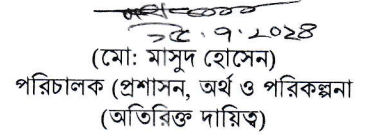 ২৫.৯.২০২৪
(মো: মাসুদ হোসেন)
পরিচালক (প্রশাসন, অর্থ ও পরিকল্পনা
(অতিরিক্ত দায়িত্ব)